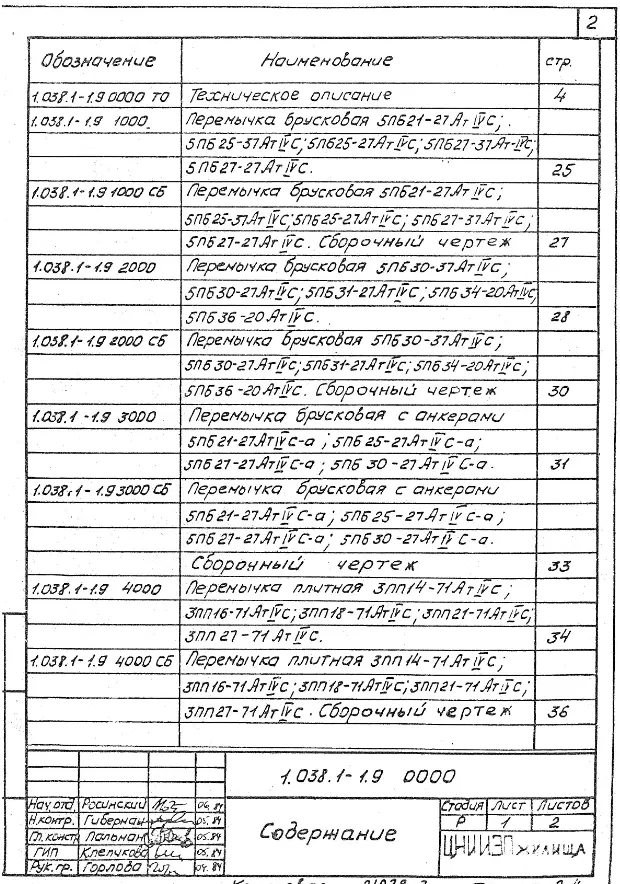 2
Обозначение Наименование стр.
1.038.1-1.9 0000 ТО Техническое описание 4
1.038.1-1.9 1000 Перемычка брусковая 5ПБ21-27АтIVС;
5ПБ25-37АтIVС; 5ПБ25-27АтIVС; 5ПБ27-37Ат-IVС;
5ПБ27-27АтIVС. 25
1.038.1-1.9 1000 СБ Перемычка брусковая 5ПБ21-27АтIVС;
5ПБ25-37АтIVС; 5ПБ25-27АтIVС; 5ПБ27-37АтIVС;
5ПБ27-27АтIVС. Сборочный чертеж 27
1.038.1-1.9 2000 Перемычка брусковая 5ПБ30-37АтIVС;
5ПБ30-27АтIVС; 5ПБ31-27АтIVС; 5ПБ34-20АтIVС;
5ПБ36-20АтIVС. 28
1.038.1-1.9 2000 СБ Перемычка брусковая 5ПБ30-37АтIVС;
5ПБ30-27АтIVС; 5ПБ31-27АтIVС; 5ПБ34-20АтIVС;
5ПБ36-20АтIVС. Сборочный чертеж 30
1.038.1-1.9 3000 Перемычка брусковая с анкерами
5ПБ21-27АтIVС-а; 5ПБ25-27АтIVС-а;
5ПБ27-27АтIVС-а; 5ПБ30-27АтIVС-а. 31
1.038.1-1.9 3000 СБ Перемычка брусковая с анкерами
5ПБ21-27АтIVС-а; 5ПБ25-27АтIVС-а;
5ПБ27-27АтIVС-а; 5ПБ30-27АтIVС-а.
Сборочный чертеж 33
1.038.1-1.9 4000 Перемычка плитная 3ПП14-71АтIVС;
3ПП16-71АтIVС; 3ПП18-71АтIVС; 3ПП21-71АтIVС;
3ПП27-71АтIVС. 34
1.038.1-1.9 4000 СБ Перемычка плитная 3ПП14-71АтIVС;
3ПП16-71АтIVС; 3ПП18-71АтIVС; 3ПП21-71АтIVС;
3ПП27-71АтIVС. Сборочный чертеж 36
1.038.1-1.9 0000
Нач.отд. Росинский 04.84
Н.контр. Гиберман 05.84
Гл.констр. Пальман 05.84
ГИП Клепикова 05.84
Рук.гр. Горлова 04.84
Содержание
Стадия Лист Листов
Р 1 2
ЦНИИЭП ЖИЛИЩА